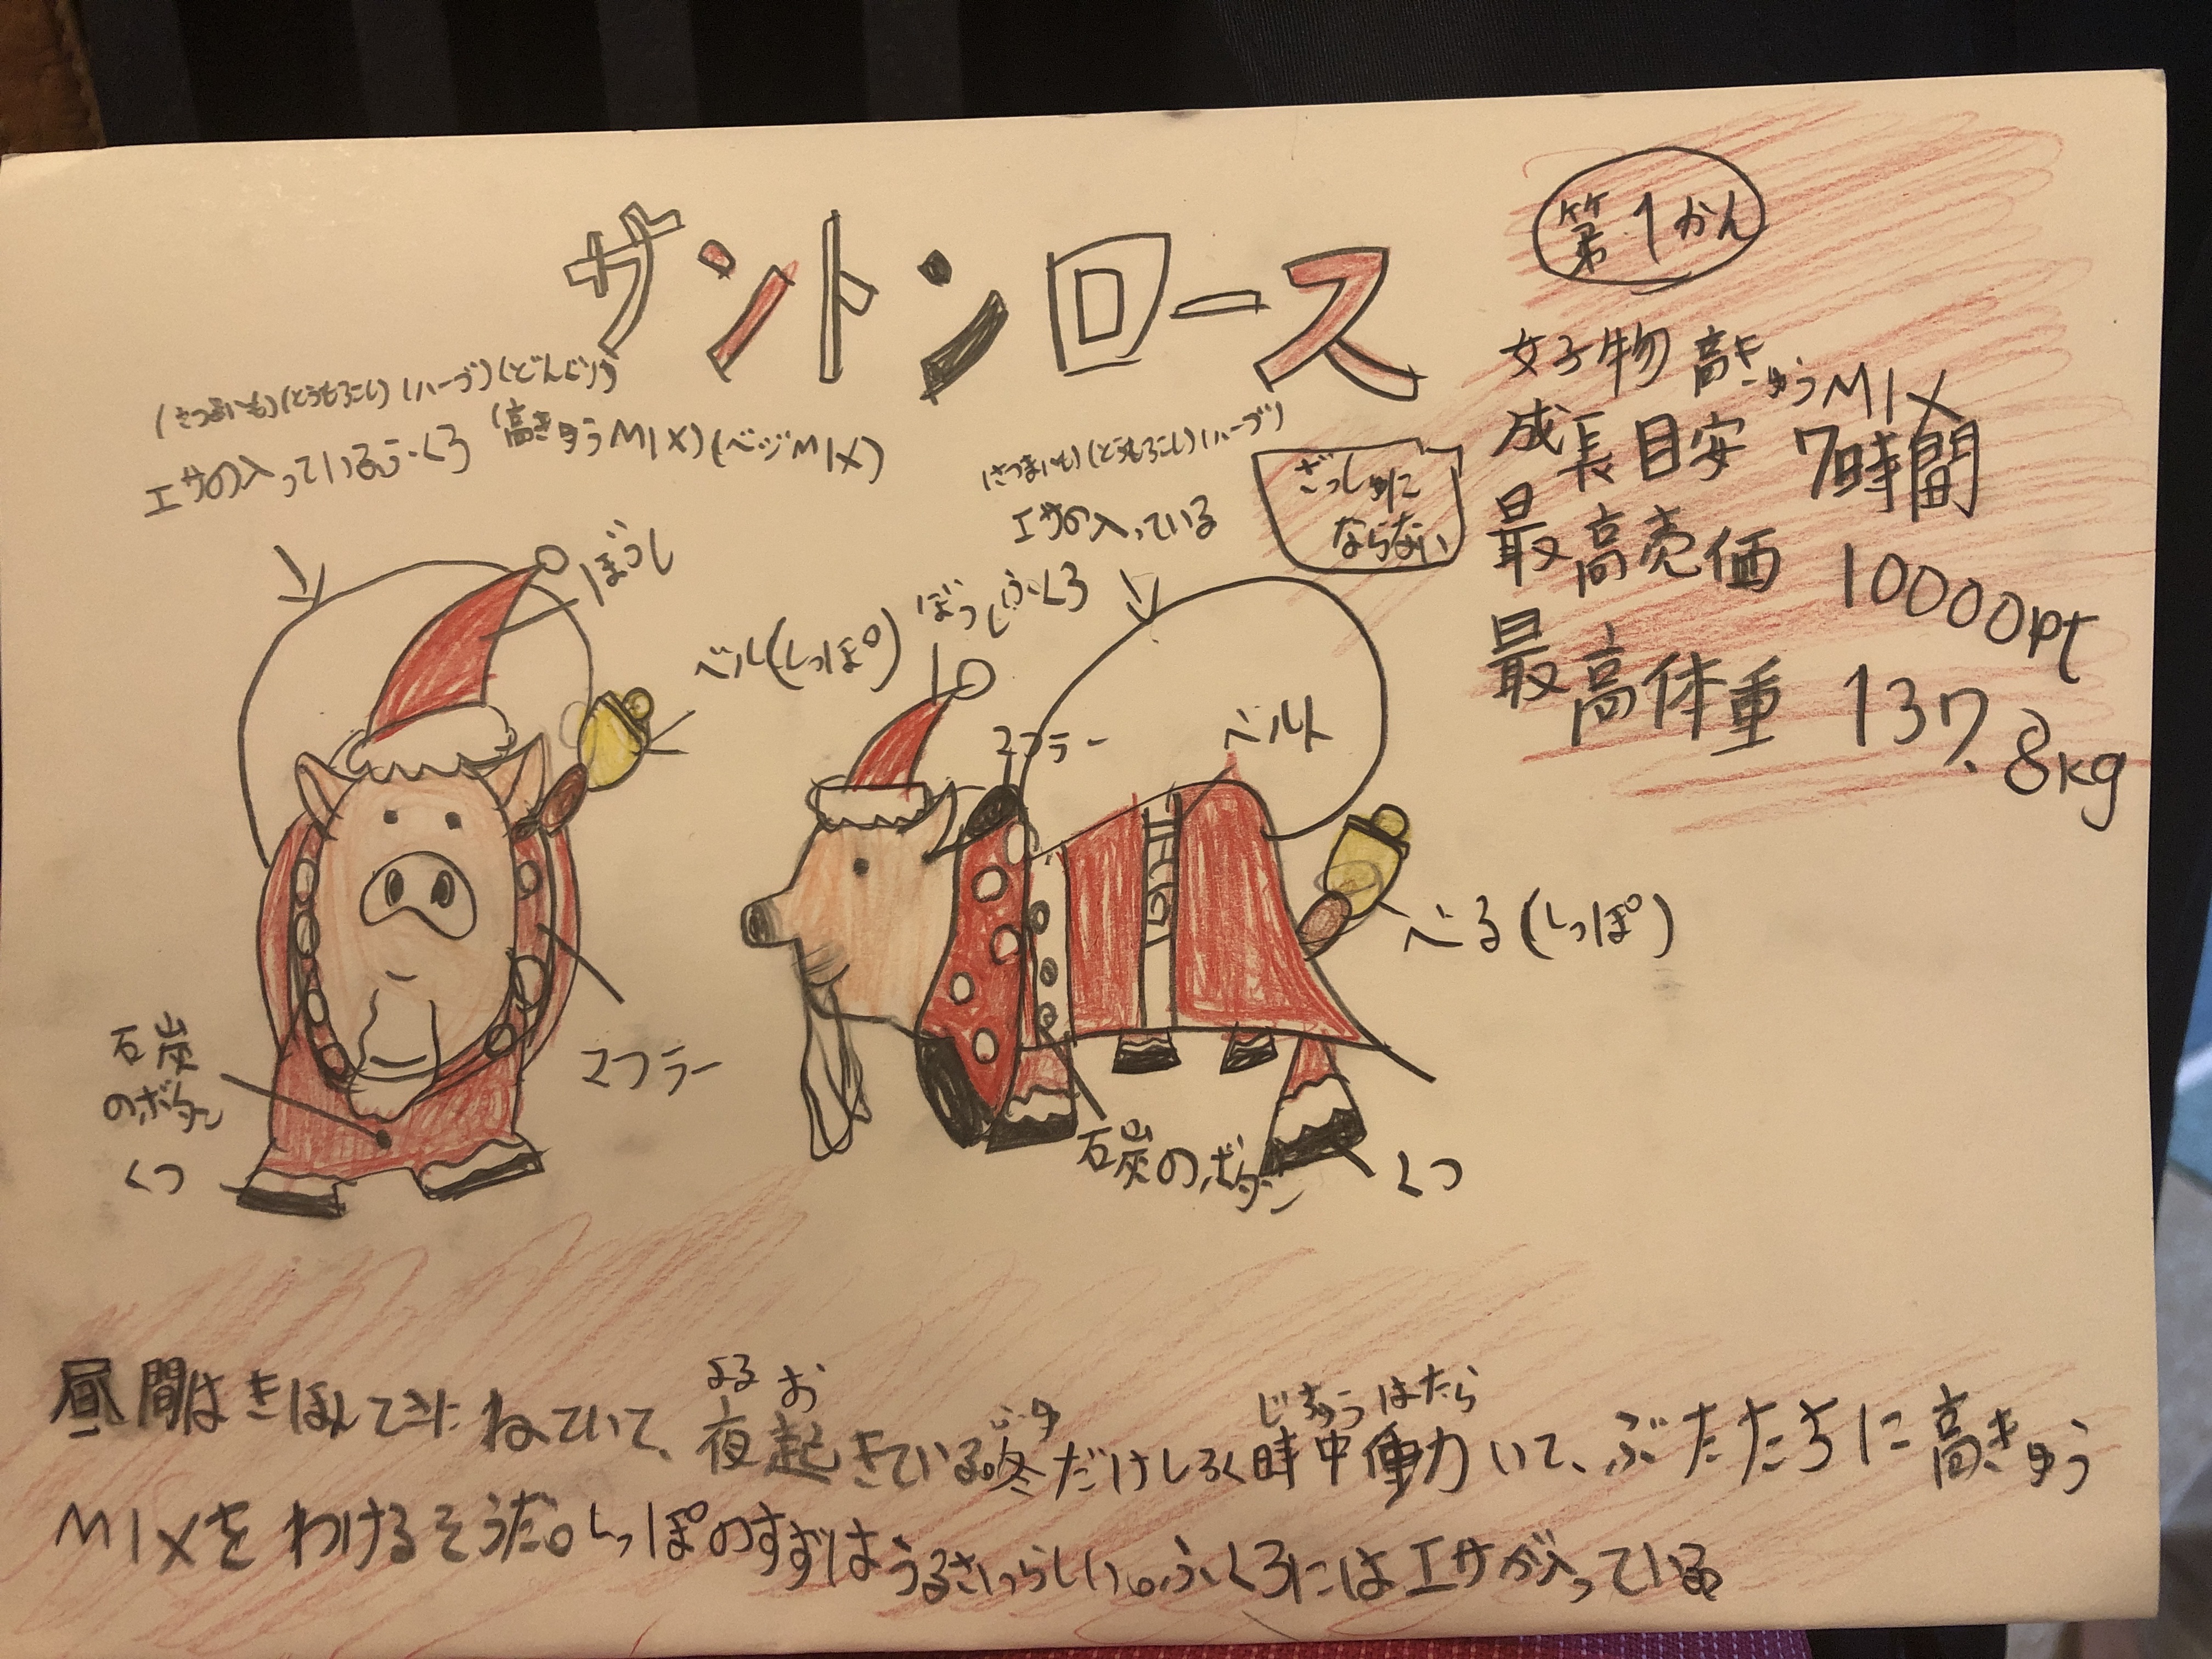 サントンロース
第1かん
好物 高きゅうMIX
成長目安 7時間
最高売価 10000pt
最高体重 137.8kg
(さつまいも)(とうもろこし)(ハーブ)(どんぐり)
エサの入っているふくろ (高きゅうMIX)(ベジMIX)
(さつまいも)(とうもろこし)(ハーブ)
エサの入っている
ふくろ
ざっしゅに
ならない
ぼうし
ベル(しっぽ)
ぼうし
マフラー
ベルト
べる(しっぽ)
石炭
のボタン
くつ
マフラー
石炭のボタン
くつ
よる お ふゆ じちゅう はたら
昼間はきほんてきにねていて、夜起きている。冬だけしろく時中働いて、ぶたたちに高きゅう
MIXをわけるそうだ。しっぽのすずはうるさいらしい。ふくろにはエサが入っている